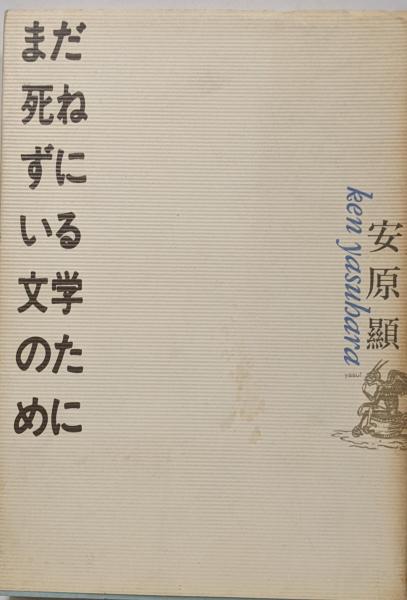 まだ
死ね
ずに
いる
文学
のた
めに
安原顯
ken yasuhara